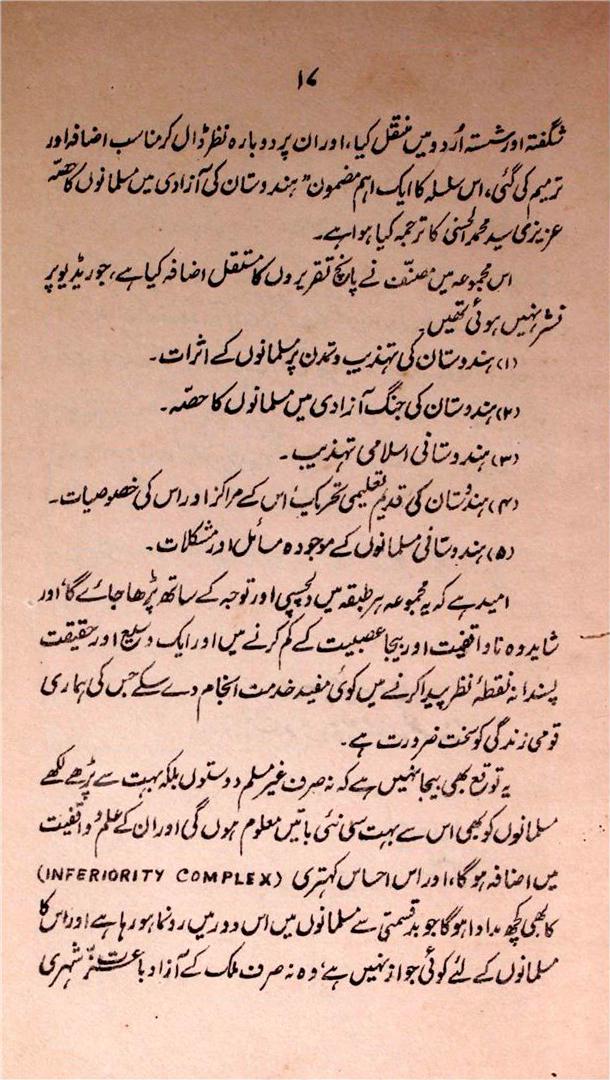 ۱۷
شگفتہ اور شستہ اُردو میں منتقل کیا، اور ان پر دوبارہ نظر ڈال کر مناسب اضافہ اور
ترمیم کی گئی، اس سلسلہ کا ایک اہم مضمون "ہندوستان کی آزادی میں مسلمانوں کا حصّہ
عزیزی سید محمد الحسنی کا ترجمہ کیا ہوا ہے۔
اس مجموعہ میں مصنّف نے پانچ تقریروں کا مستقل اضافہ کیا ہے، جو ریڈیو پر
نشر نہیں ہوئی تھیں۔
(۱) ہندوستان کی تہذیب و تمدن پر مسلمانوں کے اثرات۔
(۲) ہندوستان کی جنگ آزادی میں مسلمانوں کا حصّہ۔
(۳) ہندوستانی اسلامی تہذیب۔
(۴) ہندوستان کی قدیم تعلیمی تحریک، اس کے مراکز اور اس کی خصوصیات۔
(۵) ہندوستانی مسلمانوں کے موجودہ مسائل اور مشکلات۔
امید ہے کہ یہ مجموعہ ہر طبقہ میں دلچسپی اور توجہ کے ساتھ پڑھا جائے گا، اور
شاید وہ ناواقفیت اور بیجا عصبیت کے کم کرنے میں اور ایک وسیع اور حقیقت
پسندانہ نقطۂ نظر پیدا کرنے میں کوئی مفید خدمت انجام دے سکے جس کی ہماری
قومی زندگی کو سخت ضرورت ہے۔
یہ توقع بھی بیجا نہیں ہے کہ نہ صرف غیر مسلم دوستوں بلکہ بہت سے پڑھے لکھے
مسلمانوں کو بھی اس سے بہت سی نئی باتیں معلوم ہوں گی اور ان کے علم و واقفیت
میں اضافہ ہوگا، اور اس احساس کہتری (INFERIORITY COMPLEX)
کا بھی کچھ مداوا ہوگا جو بدقسمتی سے مسلمانوں میں اس دور میں رونما ہو رہا ہے اور اس کا
مسلمانوں کے لئے کوئی جواز نہیں ہے، وہ نہ صرف ملک کے آزاد باعزّت شہری